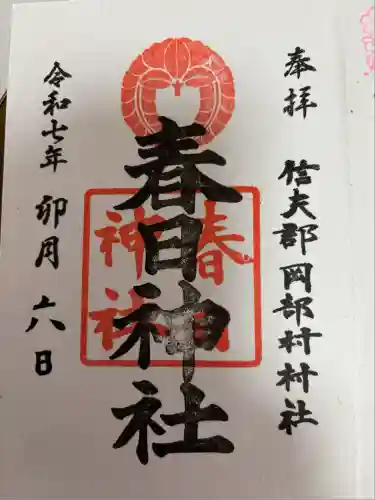 奉拝 信夫郡岡部村村社
春日神社
春日
神社
令和七年 卯月 十六日